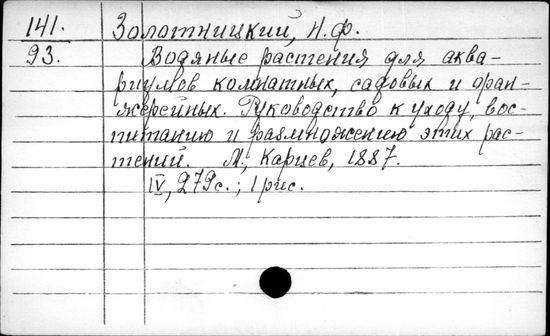 141. Золотницкий, Н.Ф.
93. Водяные растения для аква-
риумов комнатных, садовых и оран-
жерейных. Руководство к уходу, вос-
питанию и размножению этих рас-
тений. М., Карцев, 1887.
IV, 279с.; 1 рис.